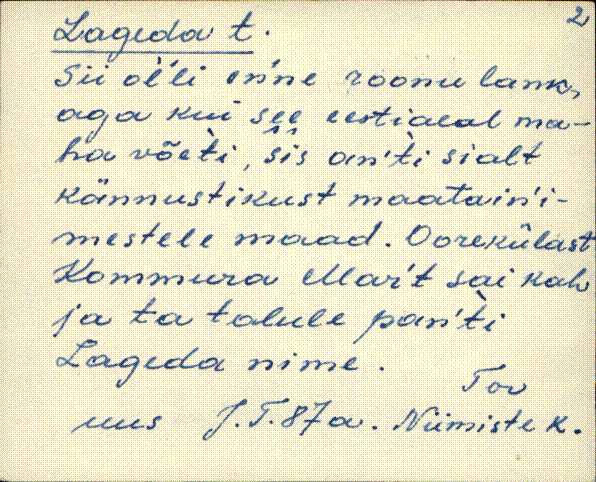 2
Lageda t.
Sii ol'li en'ne roonu lank,
aga kui see eestiaeal ma-
ha võeti, šis an'ti sialt
kännustikust maatain'i-
mestele maad. Oorekülast
Kommura Mar't sai kah
ja ta talule pan'ti
Lageda nime.
Tor
uus J.T. 87 a. Niimiste k.